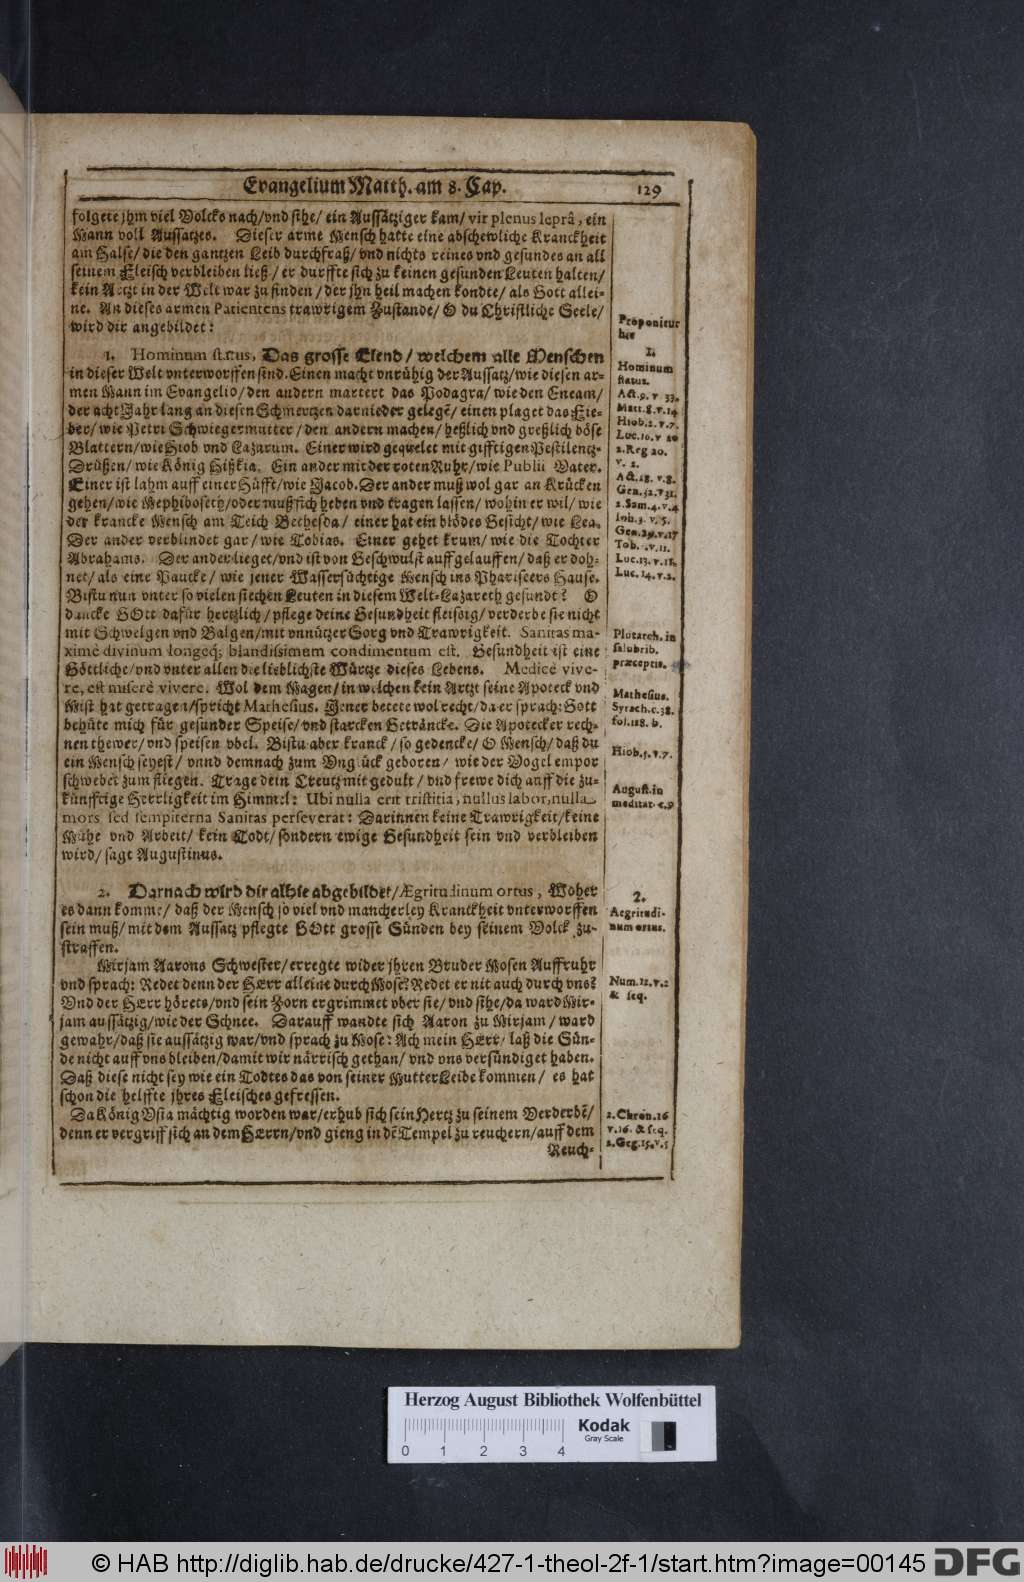 Evangelium Matth. am 8. Cap. 129
folgete jhm viel Volcks nach/vnd sihe/ ein Aussätziger kam/ vir plenus leprâ, ein
Mann voll Aussatzes. Dieser arme Mensch hatte eine abschewliche Kranckheit
am Halse/ die den gantzen Leib durchfraß/ vnd nichts reines vnd gesundes an all
seinem Fleisch verbleiben ließ/ er durffte sich zu keinen gesunden Leuten halten/
kein Artzt in der Welt war zu finden/ der jhn heil machen kondte/ als Gott allei-
ne. An dieses armen Patientens trawrigem Zustande/ O du Christliche Seele/
wird dir angebildet:
Proponitur
hic
1. Hominum status, Das grosse Elend/ welchem alle Menschen
in dieser Welt vnterworffen sind. Einen macht vnrühig der Aussatz/ wie diesen ar-
men Mann im Evangelio/ den andern martert das Podagra/ wie den Eneam/
der acht Jahr lang an diesen Schmertzen darnieder gelegẽ/ einen plaget das Fie-
ber/ wie Petri Schwiegermutter/ den andern machen/ heßlich vnd greßlich böse
Blattern/ wie Hiob vnd Lazarum. Einer wird gequelet mit gifftigen Pestilentz-
Drüßen/ wie König Hißkia. Ein ander mit der roten Ruhr/ wie Publii Vater.
Einer ist lahm auff einer Hüfft/ wie Jacob. Der ander muß wol gar an Krücken
gehen/ wie Mephiboseth/ oder muß sich heben vnd tragen lassen/ wohin er wil/ wie
der krancke Mensch am Teich Bethesda/ einer hat ein blödes Gesicht/ wie Lea.
Der ander verblindet gar/ wie Tobias. Einer gehet krum/ wie die Tochter
Abrahams. Der ander lieget/ vnd ist von Geschwulst auffgelauffen/ daß er döh-
net/ als eine Paucke/ wie jener Wassersüchtige Mensch ins Phariseers Hause.
Bistu nun vnter so vielen siechen Leuten in diesem Welt-Lazareth gesundt? O
dancke GOtt dafür hertzlich/ pflege deine Gesundheit fleissig/ verderbe sie nicht
mit Schwelgen vnd Balgen/ mit vnnützer Sorg vnd Trawrigkeit. Sanitas ma-
ximè divinum longeq; blandissimum condimentum est. Gesundheit ist eine
Göttliche/ vnd vnter allen die lieblichste Würtze dieses Lebens. Medicè vive-
re, est miserè vivere. Wol dem Magen/ in welchen kein Artzt seine Apoteck vnd
Mist hat getragen/ spricht Mathesius. Jener betete wol recht/ da er sprach: Gott
behüte mich für gesunder Speise/ vnd starcken Getråncke. Die Apotecker rech-
nen thewer/ vnd speisen vbel. Bistu aber kranck/ so gedencke/ O Mensch/ daß du
ein Mensch seyest/ vnnd demnach zum Vnglück geboren/ wie der Vogel empor
schwebet zum fliegen. Trage dein Creutz mit gedult/ vnd frewe dich auff die zu-
künfftige Herrligkeit im Himmel: Ubi nulla erit tristitia, nullus labor, nulla
mors, sed sempiterna Sanitas perseverat: Darinnen keine Trawrigkeit/ keine
Mühe vnd Arbeit/ kein Todt/ sondern ewige Gesundheit sein vnd verbleiben
wird/ sagt Augustinus.
1.
Hominum
status.
Act. 9. v. 33.
Matt. 8. v. 14
Hiob. 2. v. 7.
Luc. 16. v. 20
2. Reg 20.
v. 2.
Act. 28. v. 8.
Gen. 32. v 31.
2. Sam. 4. v. 4
Joh. 5. v. 5.
Gen. 29. v. 17
Tob. . v. 11.
Luc. 13. v. 11.
Luc. 14. v. 2.
Plutarch. in
salubrib.
præceptis.
Mathesius.
Syrach. c. 38.
fol. 118. b.
Hiob. 5. v. 7.
August. in
meditat. c. 9
2. Darnach wird dir alhie abgebildet/ Ægritudinum ortus, Woher
es dann komme/ daß der Mensch so viel vnd mancherley Kranckheit vnterworffen
sein muß/ mit dem Aussatz pflegte GOtt grosse Sünden bey seinem Volck zu-
straffen.
2.
Aegritudi-
num ortus.
Mirjam Aarons Schwester/ erregte wider jhren Bruder Mosen Auffruhr
vnd sprach: Redet denn der HErr alleine durch Mose? Redet er nit auch durch vns?
Vnd der HErr hörets/ vnd sein Zorn ergrimmet vber sie/ vnd sihe/ da ward Mir-
jam aussätzig/ wie der Schnee. Darauff wandte sich Aaron zu Mirjam/ ward
gewahr/ daß sie aussätzig war/ vnd sprach zu Mose: Ach mein HErr/ laß die Sün-
de nicht auff vns bleiben/ damit wir närrisch gethan/ vnd vns versündiget haben.
Daß diese nicht sey wie ein Todtes das von seiner Mutter Leibe kommen/ es hat
schon die helffte jhres Fleisches gefressen.
Num. 12. v. 2
& seq.
Da König Vsia mächtig worden war/ erhub sich sein Hertz zu seinem Verderbẽ/
denn er vergriff sich an dem HErrn/ vnd gieng in dẽ Tempel zu reuchern/ auff dem
Reuch-
2. Chron. 26
v. 16. & seq.
2. Reg. 15. v. 5
Herzog August Bibliothek Wolfenbüttel
Kodak
Gray Scale
0 1 2 3 4
© HAB http://diglib.hab.de/drucke/427-1-theol-2f-1/start.htm?image=00145 DFG